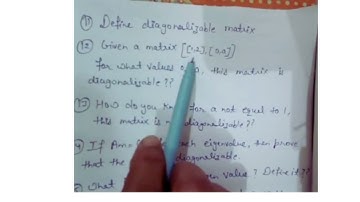 11) Define diagonalizable matrix
12) Given a matrix [[1,2], [0,a]]
for what values a, this matrix is
diagonalizable??
13) How do you know for a not equal to 1,
this matrix is diagonalizable??
If each eigenvalue, then prove
that the diagonalizable.
value? Define it??
What